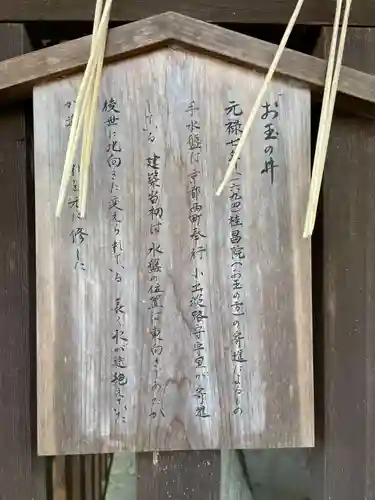 お玉の井
元禄七年(一六九四)桂昌院(お玉の方)の寄進によるもの
手水盤は京都西町奉行小出淡路守守里が寄進
している 建築当初は水盤の位置は東向きであったが
後世に北向きに変えられている 長く水が途絶えていた
が 元に修した